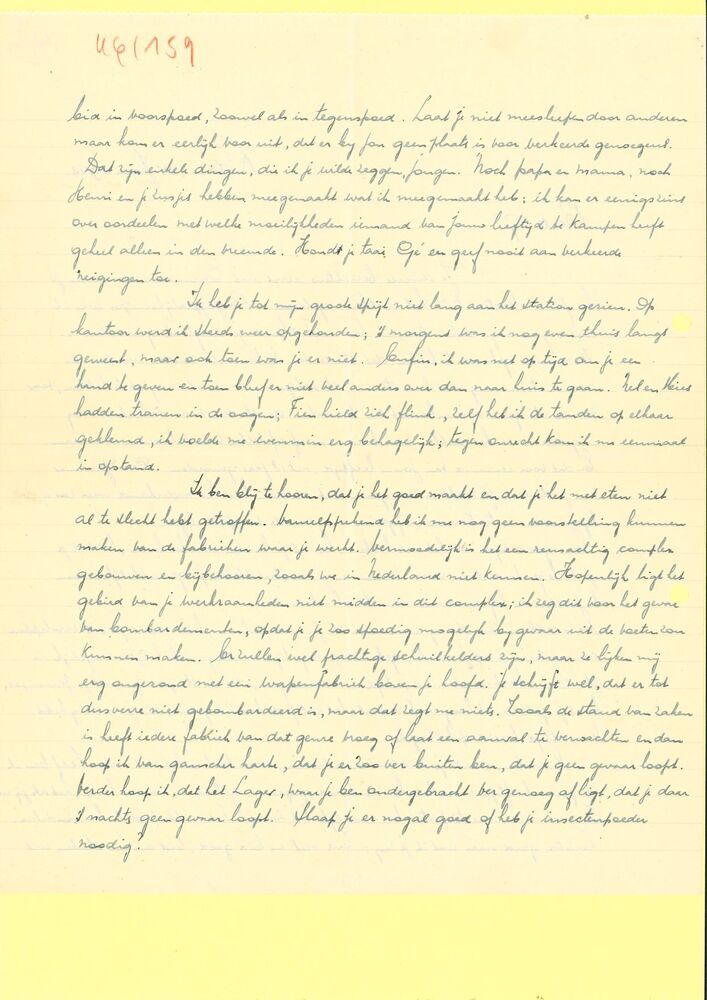 UG/159
bid in voorspoed, zoowel als in tegenspoed. Laat je niet meesleepen door anderen
maar kom er eerlijk voor uit, dat er bij jou geen plaats is voor verkeerde genoegens.
Dat zijn enkele dingen, die ik je wilde zeggen, jongen. Noch papa en mama, noch
Henri en je zusjes hebben meegemaakt wat ik meegemaakt heb; ik kan er eenigszins
over oordeelen met welke moeilijkheden iemand van jouw leeftijd te kampen heeft
geheel alleen in den vreemde. Houdt je taai Gé en geef nooit aan verkeerde
neigingen toe.
Ik heb je tot mijn groote spijt niet lang aan het station gezien. Op
kantoor werd ik steeds weer opgehouden; 's morgens was ik nog even thuis langs
geweest, maar ook toen was je er niet. Enfin, ik was net op tijd om je een
hand te geven en toen bleef er niet veel anders over dan naar huis te gaan. Nel en Mies
hadden tranen in de oogen; Fien hield zich flink, zelf heb ik de tanden op elkaar
geklemd, ik voelde me evenmin erg behagelijk; tegen onrecht kom ik nu eenmaal
in opstand.
Ik ben blij te hooren, dat je het goed maakt en dat je het met eten niet
al te slecht hebt getroffen. Vanzelfsprekend heb ik me nog geen voorstelling kunnen
maken van de fabrieken waar je werkt. Vermoedelijk is het een reusachtig complex
gebouwen en bijbehooren, zooals we in Nederland niet kennen. Hopenlijk ligt het
gebied van je werkzaamheden niet midden in dit complex; ik zeg dit voor het gevaar
van bombardementen, opdat je je zoo spoedig mogelijk bij gevaar uit de voeten zou
kunnen maken. Er zullen wel prachtige schuilkelders zijn, maar ze lijken mij
erg ongezond met een wapenfabriek boven je hoofd. Je schrijft wel, dat er tot
dusverre niet gebombardeerd is, maar dat zegt me niets. Zooals de stand van zaken
is heeft iedere fabriek van dat genre vroeg of laat een aanval te verwachten en dan
hoop ik van ganscher harte, dat je er zoo ver buiten ben, dat je geen gevaar loopt.
Verder hoop ik, dat het Lager, waar je ben ondergebracht ver genoeg af ligt, dat je daar
's nachts geen gevaar loopt. Slaap je er nogal goed of heb je insectenpoeder
noodig?